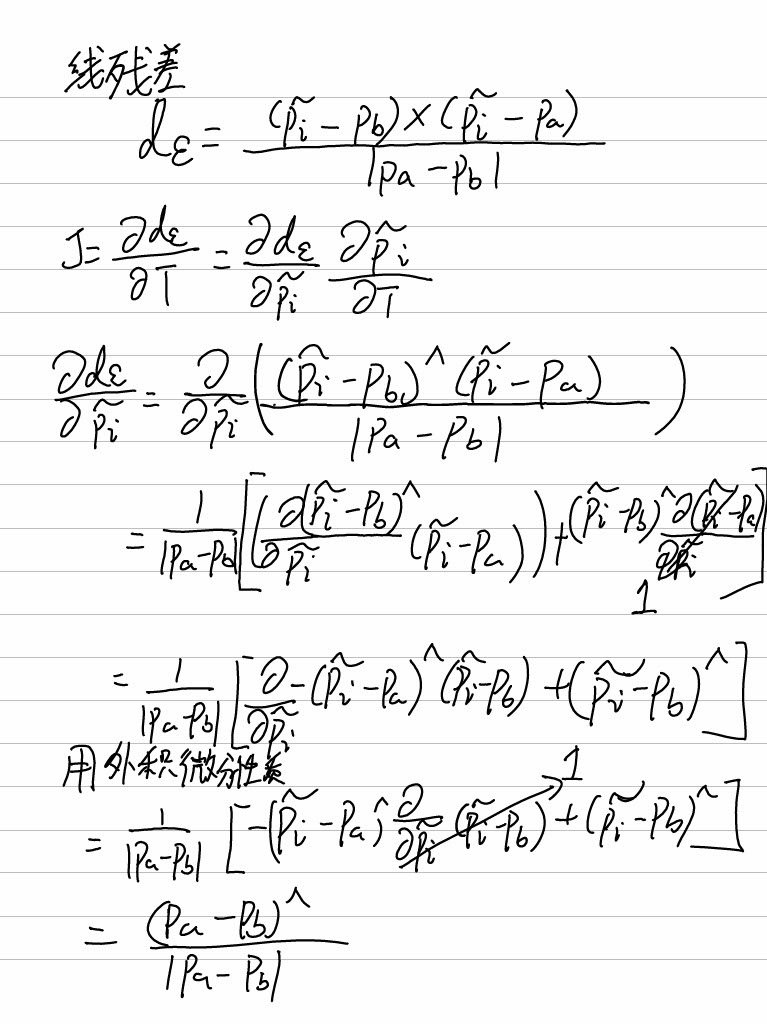 线残差
dε = (p̃i − pb) × (p̃i − pa) / |pa − pb|
J = ∂dε/∂T = ∂dε/∂p̃i ∂p̃i/∂T
∂dε/∂p̃i = ∂/∂p̃i ( (p̃i − pb)^ (p̃i − pa) / |pa − pb| )
= 1/|pa − pb| [ ( ∂(p̃i − pb)^/∂p̃i (p̃i − pa) ) + (p̃i − pb)^ ∂(p̃i − pa)/∂p̃i ]
1
= 1/|pa − pb| [ ∂/∂p̃i −(p̃i − pa)^ (p̃i − pb) + (p̃i − pb)^ ]
用外积微分性质
1
= 1/|pa − pb| [ −(p̃i − pa)^ ∂/∂p̃i (p̃i − pb) + (p̃i − pb)^ ]
= (pa − pb)^ / |pa − pb|